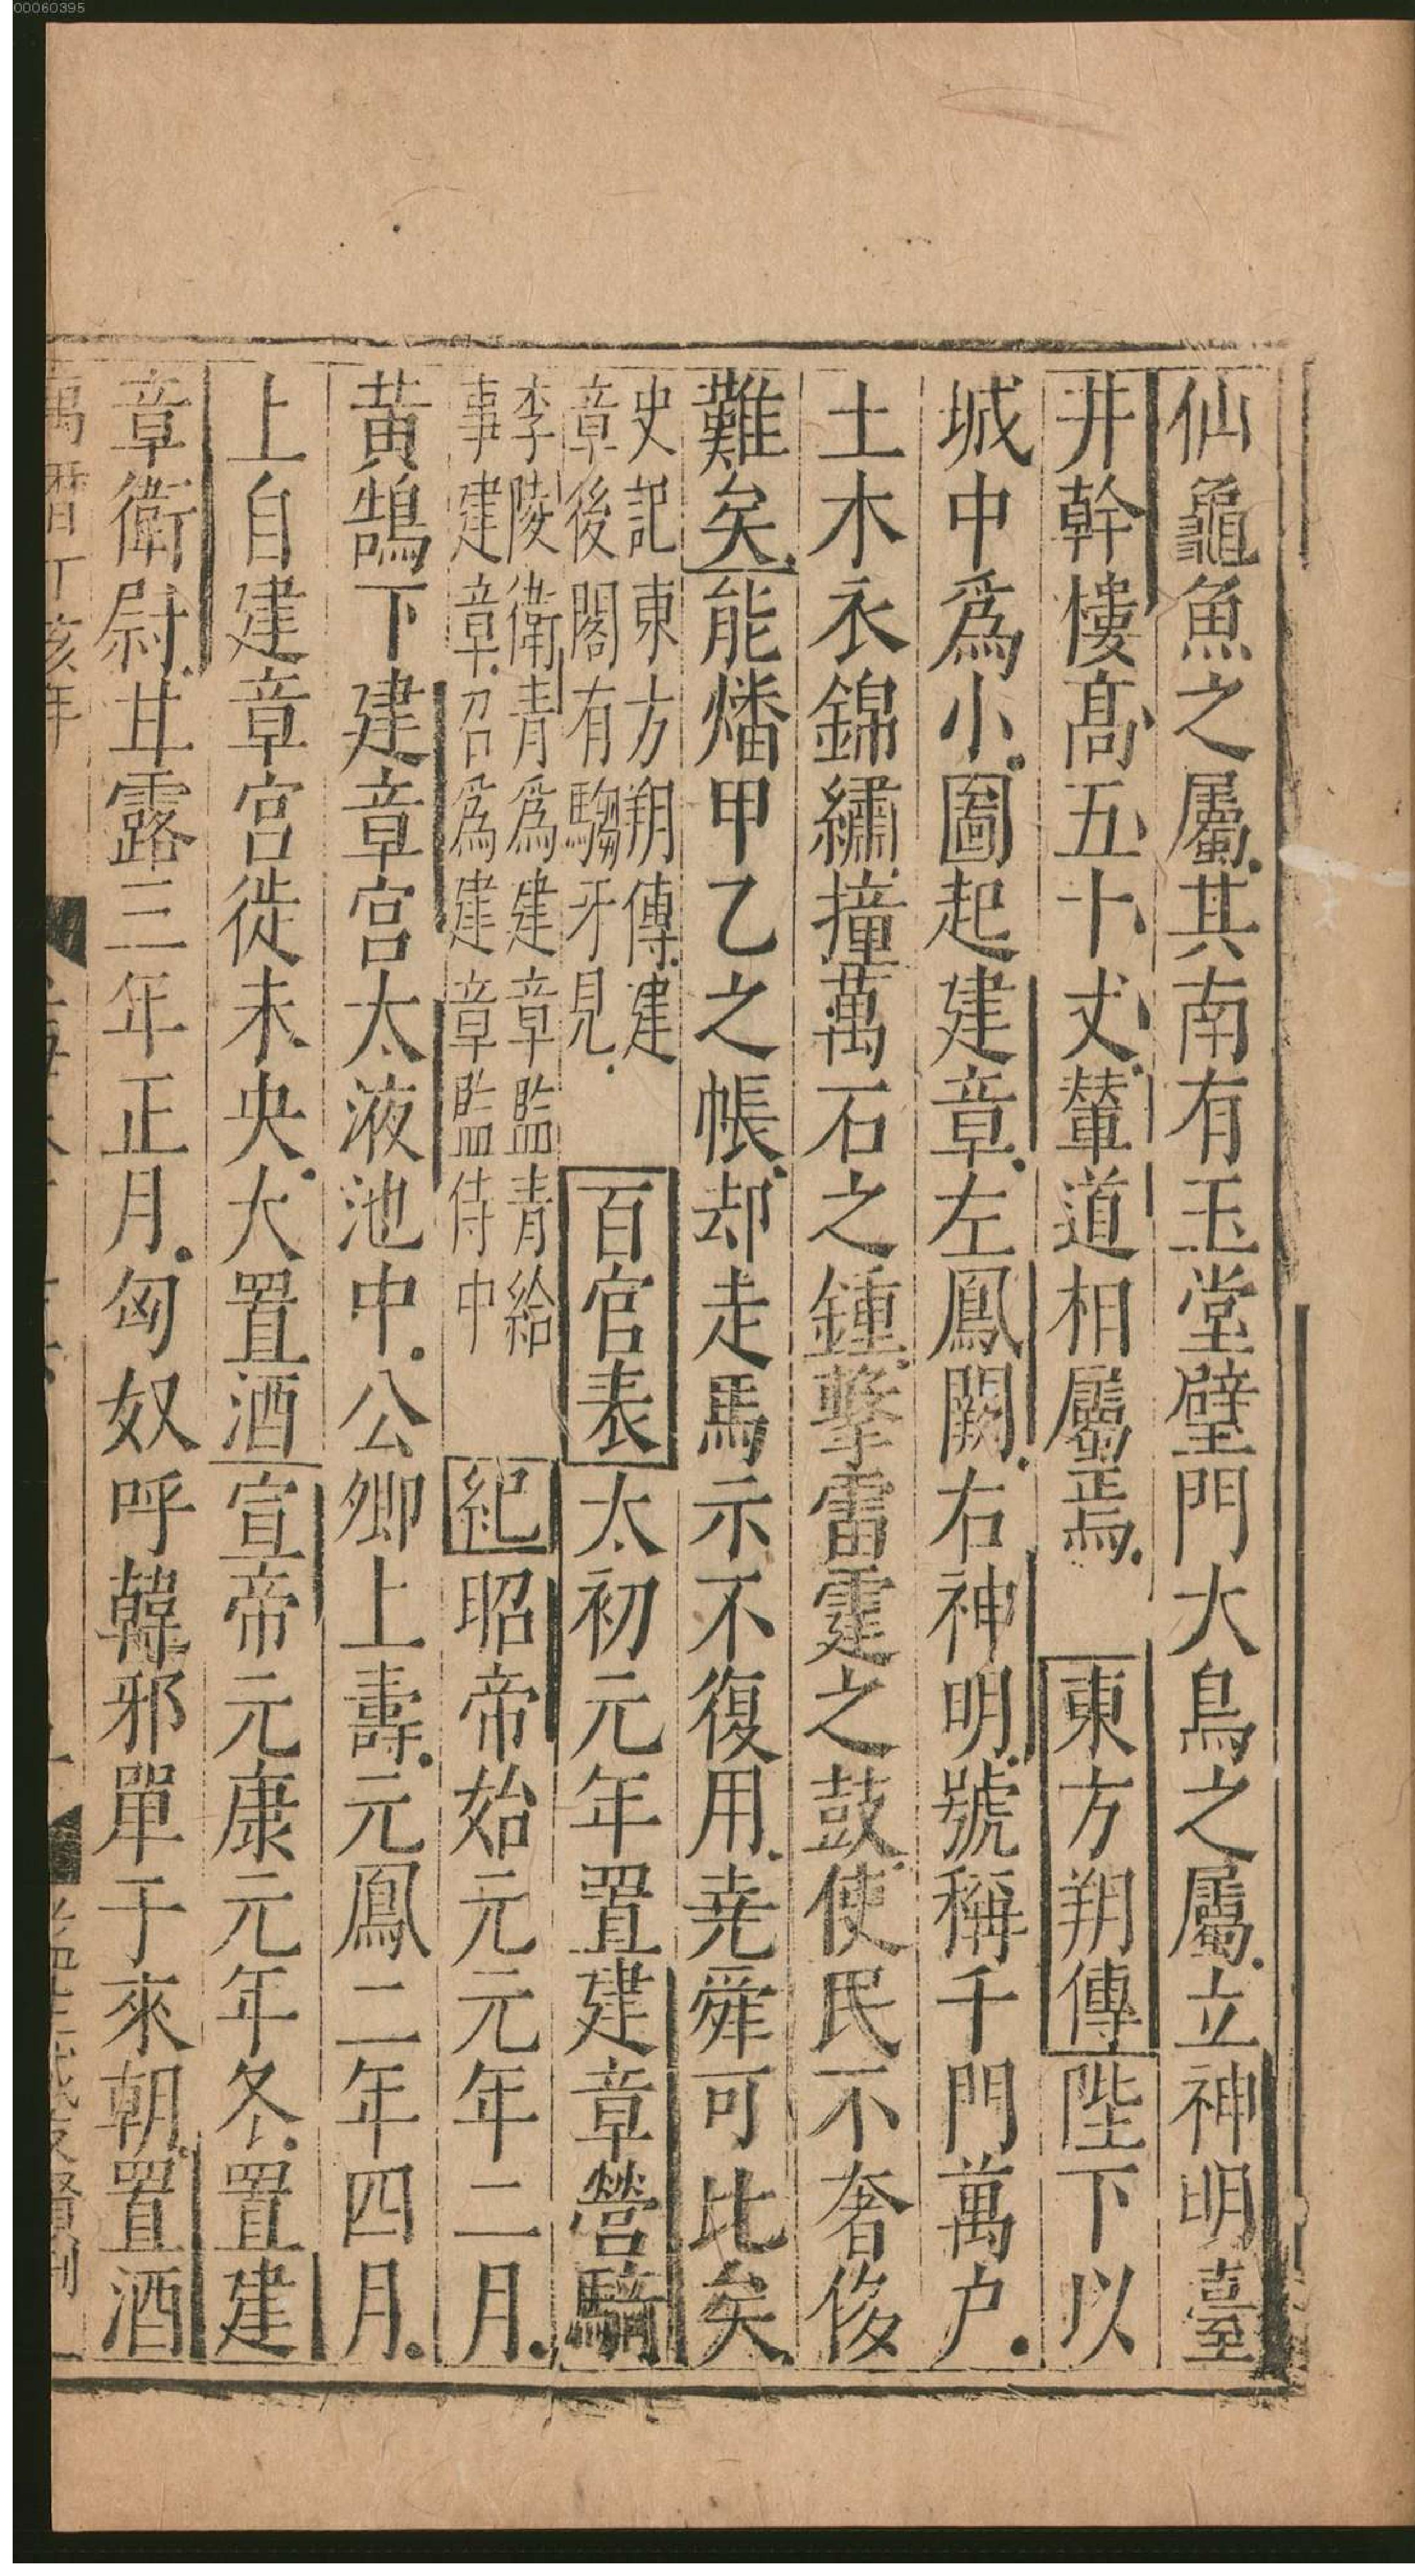 00060395
仙龜魚之屬其南有玉堂璧門大鳥之屬立神明臺
井幹樓高五十丈輦道相屬焉東方朔傳陛下以
城中爲小圖起建章左鳳闕右神明號稱千門萬户
土木衣錦繡撞萬石之鍾擊雷霆之鼓使民不奢侈
難矣能燔甲乙之帳却走馬示不復用堯舜可比矣
史記東方朔傳建
章後閣有騶牙見
百官表太初元年置建章營騎
李陵衛青爲建章監青給
事建章召爲建章監侍中
紀昭帝始元元年二月
黃鵠下建章宮太液池中公卿上壽元鳳二年四月
上自建章宮徙未央大置酒宣帝元康元年冬置建
章衛尉甘露三年正月匈奴呼韓邪單于來朝置酒
萬曆丁亥年